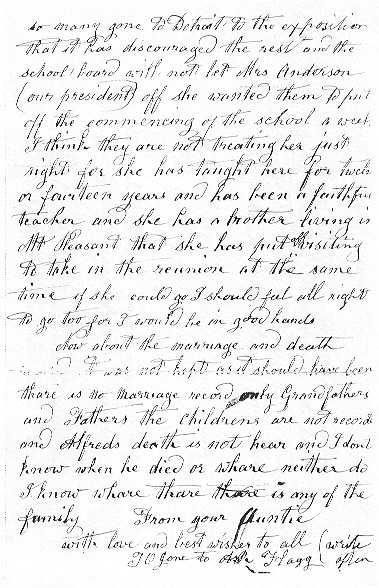 so many gone to Detroit to the exposition
that it has discouraged the rest and the
school board will not let Mrs Anderson
(our president) off she wanted them to put
off the commencing of the school a week
I think they are not treating her just
right for she has taught here for twelv
or fourteen years and has been a faithful
teacher and she has a brother living in
Mt Pleasant that she has put visiting
to take in the reunion at the same
time if she could go I should feel all right
to go too for I would be in good hands
Now about the marriage and death
it was not kept as it should have been
there is no marriage record only Grandfathers
and Fathers the childrens are not records
and Alfreds death is not hear and I dont
know when he died or whare neither do
I know whare thare is any of the
family From your Auntie
with love and best wishes to all (write
to Flagg often